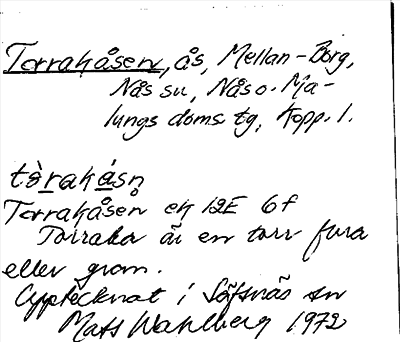 Torrakåsen, ås, Mellan-Borg,
Nås sn, Nås o. Ma-
lungs doms. tg, Kopp. l.
tòrakásn
Torrakåsen ek 12E 6f
Torraka är en torr fura
eller gran.
Upptecknat i Säfsnäs sn
Mats Wahlberg 1972